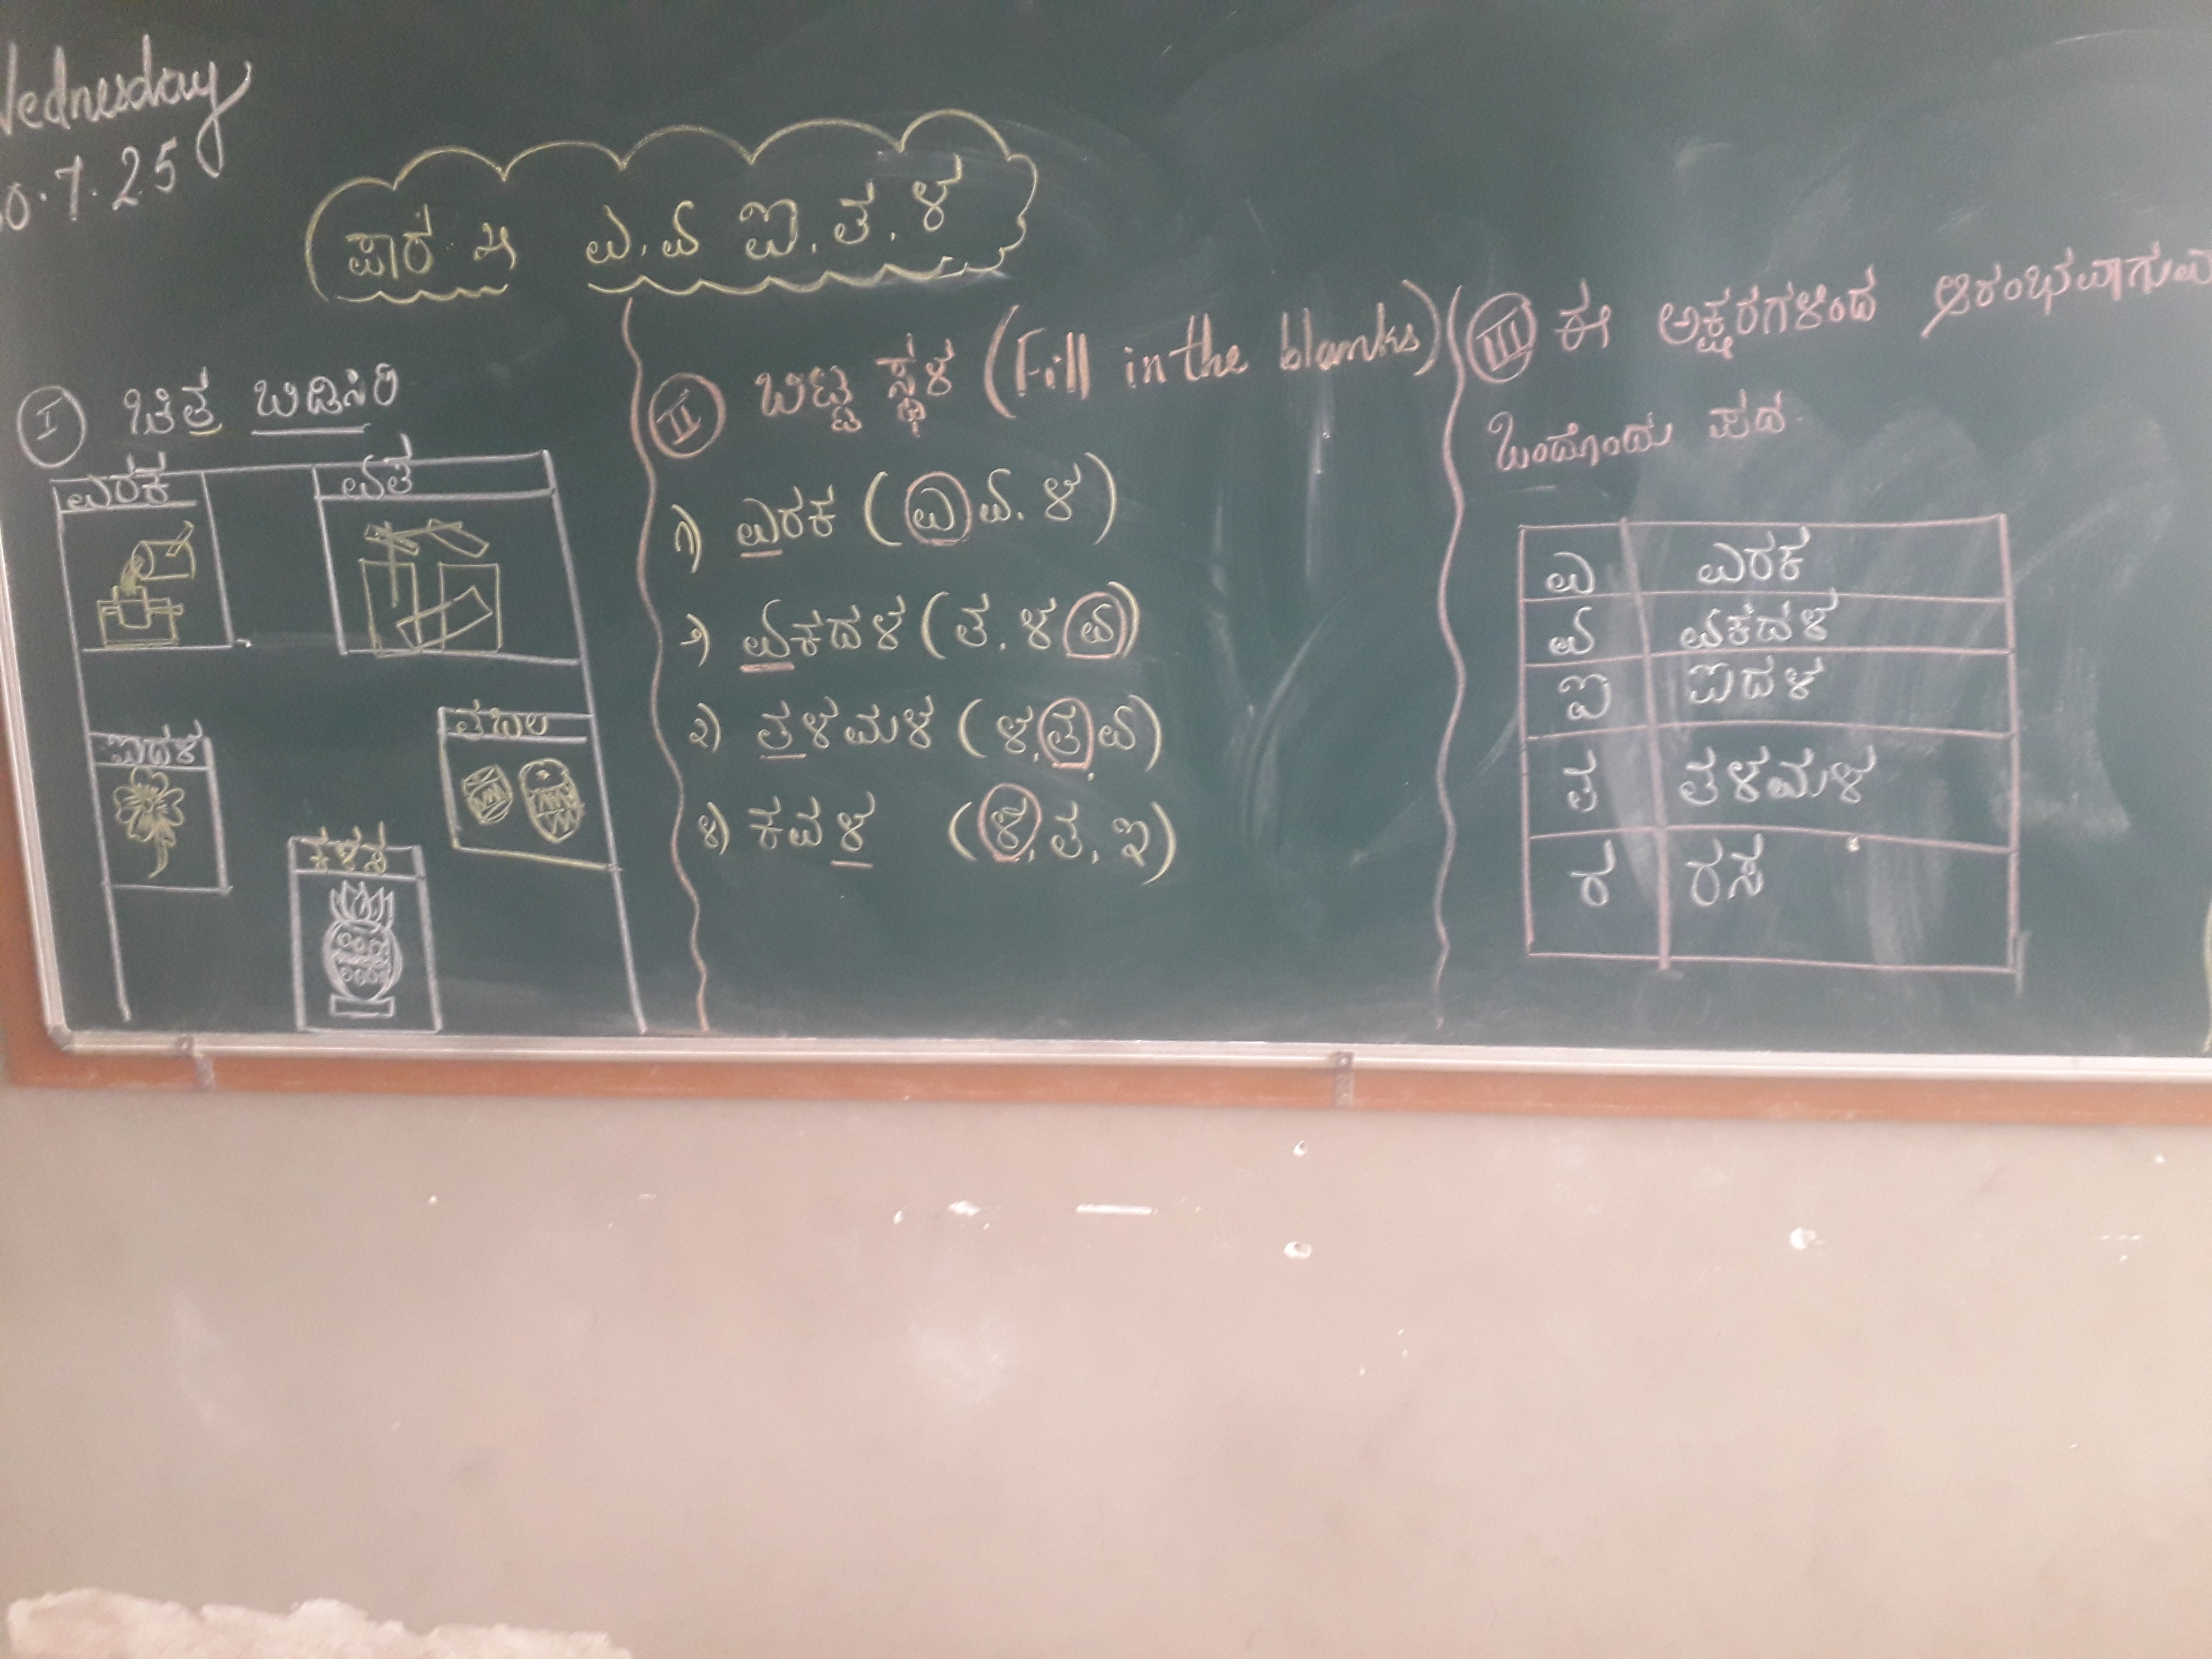 Wednesday
0.7.25
ಪಾಠ ೫ ಎ. ಏ ಐ. ತ. ಳ
I ಚಿತ್ರ ಬಿಡಿಸಿರಿ
ಎರಕ ಏತ
ಐದಳ ತಬಲ
ಕಳಸ
II ಬಿಟ್ಟ ಸ್ಥಳ (Fill in the blanks)
೧) ಎರಕ (ಎ ಏ. ಳ)
೨) ಏಕದಳ (ತ. ಳ ಏ)
೩) ತಳಮಳ (ಳ. ತ. ಏ)
೪) ಕವಳ (ಳ, ತ, ಐ)
III ಈ ಅಕ್ಷರಗಳಿಂದ ಆರಂಭವಾಗುವ
ಒಂದೊಂದು ಪದ.
ಎ ಎರಕ
ಏ ಏಕದಳ
ಐ ಐದಳ
ತ ತಳಮಳ
ರ ರಸ